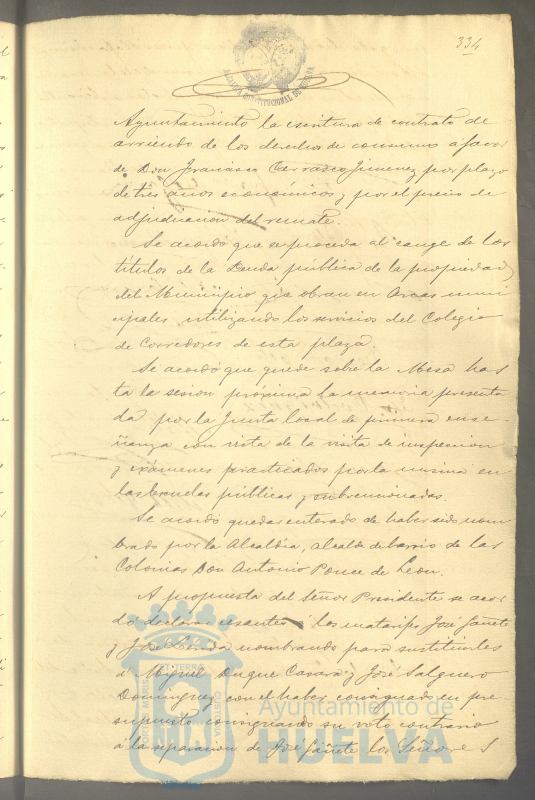 334
ALCALDIA CONSTITUCIONAL DE HUELVA
Ayuntamiento la escritura de contrato de
arriendo de los derechos de consumos á favor
de Don Francisco Carrasco Jimenez por plazo
de tres años económicos y por el precio de
adjudicacion del remate.
Se acordó que se proceda al cange de los
títulos de la Deuda pública de la propiedad
del Municipio que obran en Arcas muni-
cipales utilizando los servicios del Colegio
de Corredores de esta plaza.
Se acordó que quede sobre la Mesa has
ta la sesion próxima la memoria presenta
da por la Junta local de primera ense-
ñanza con vista de la visita de inspeccion
y exámenes practicados por la misma en
las Escuelas públicas y subvencionadas.
Se acordó quedar enterado de haber sido nom
brado por la Alcaldía, alcalde de barrio de las
Colonias Don Antonio Ponce de Leon.
A propuesta del Señor Presidente se acor
dó declarar cesantes á los matarifes José Jañete
y José nombrando para sustituirles
á Miguel Duque y José Salguero
Dominguez con el haber consignado en pre
supuesto consignando su voto contrario
á la separacion de José Jañete los Señores
Ayuntamiento de
HUELVA